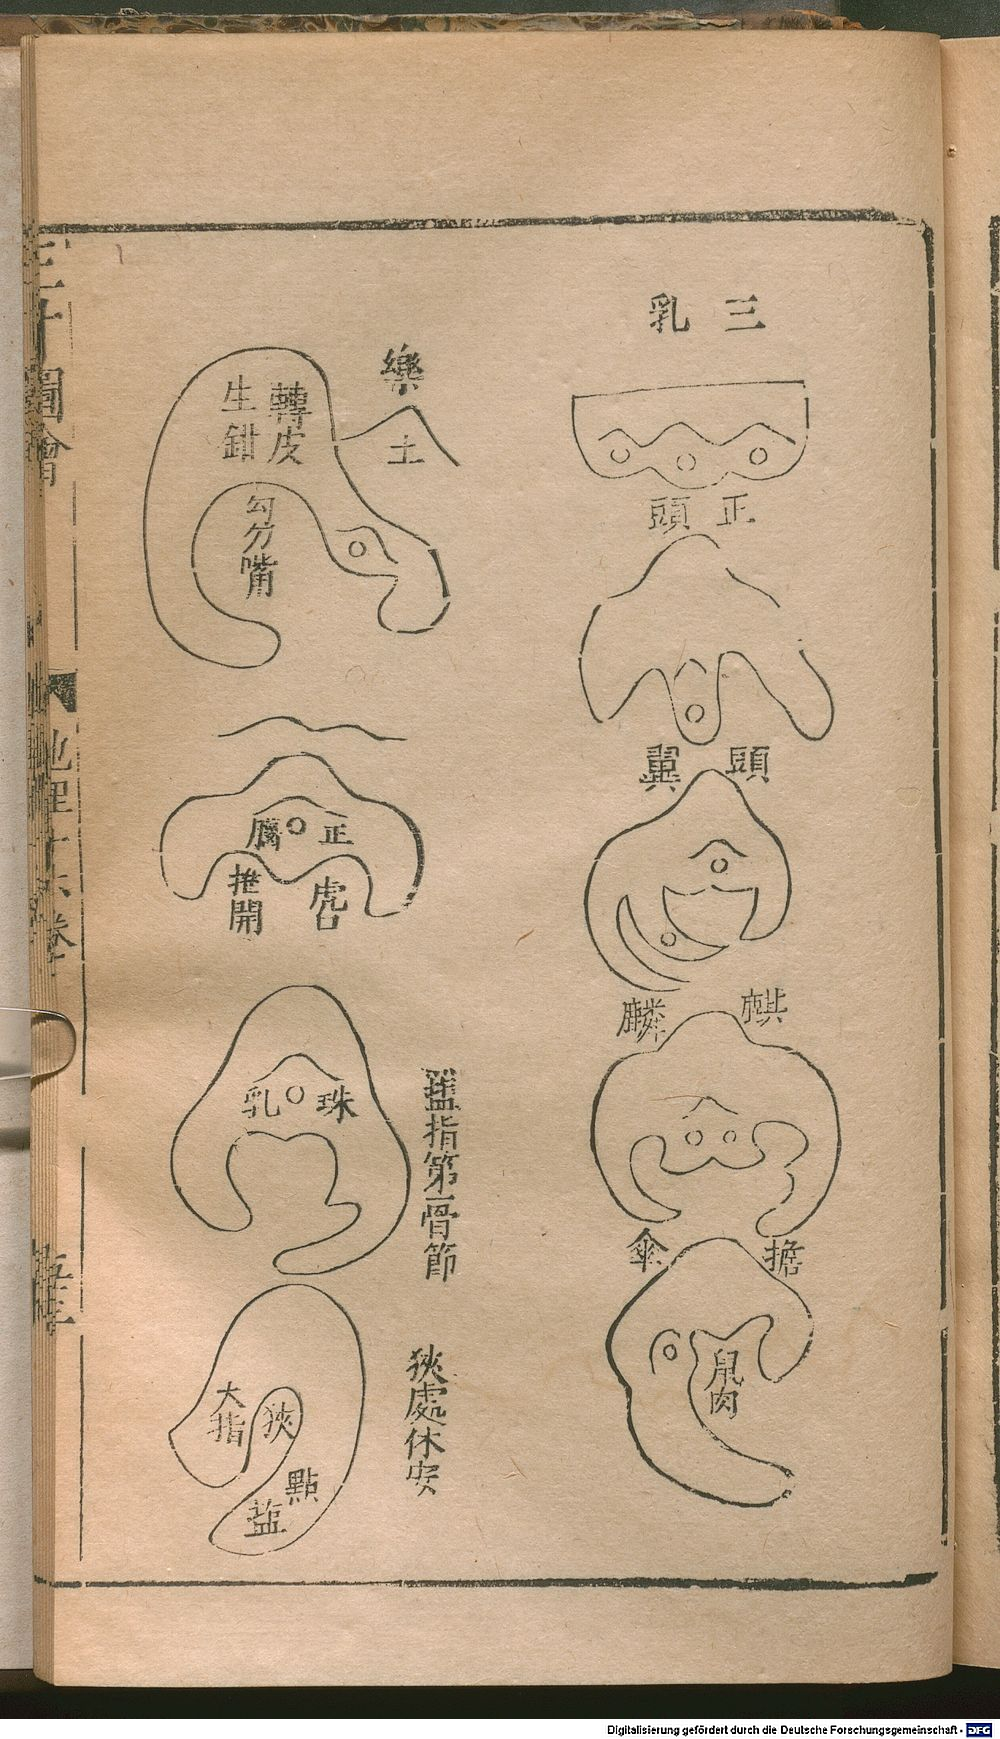 三乳
正頭
頭翼
麒麟
擔傘
鼠肉
樂
土
轉皮
生鉗
勾分嘴
正
虎口
推開
珠乳
指第一骨節
狹處休安
大指
狹
點
地理十六卷
Digitalisierung gefördert durch die Deutsche Forschungsgemeinschaft - DFG